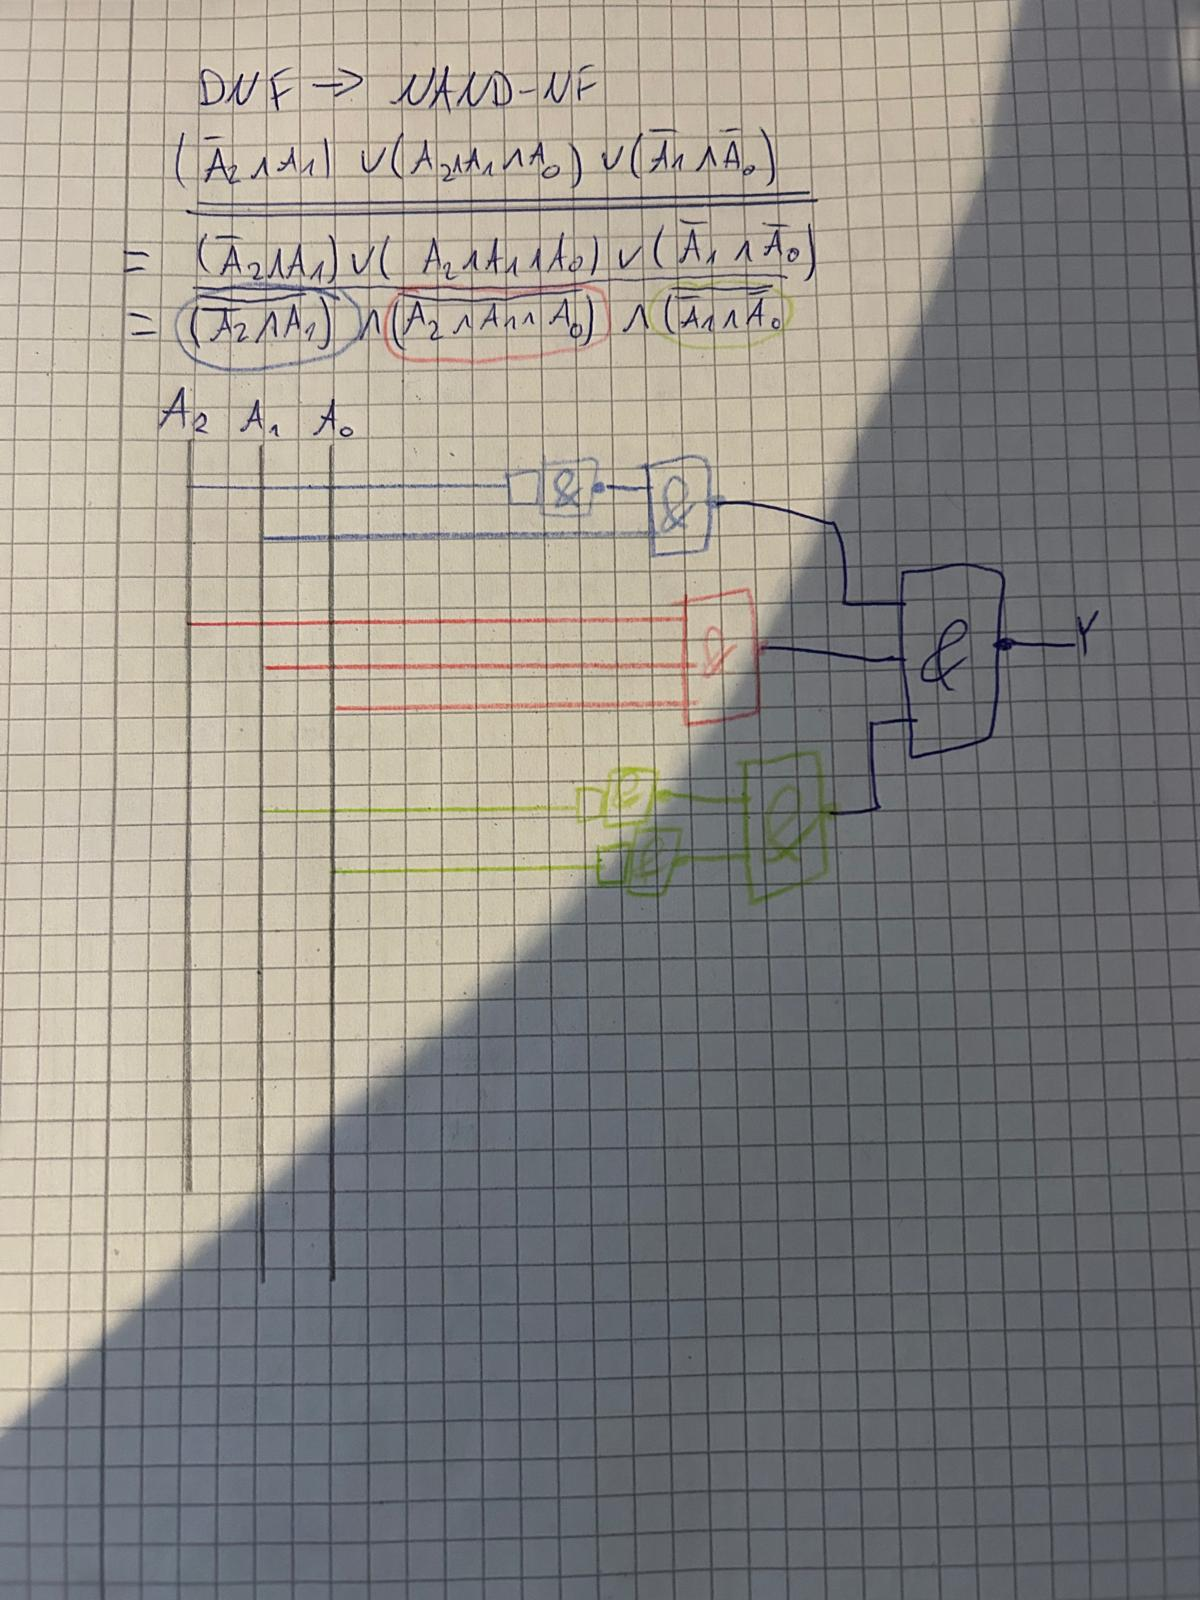 DNF → NAND-NF
(A̅₂∧A₁) ∨ (A₂∧A₁∧A₀) ∨ (A̅₁∧A̅₀)
= (A̅₂∧A₁) ∨ (A₂∧A₁∧A₀) ∨ (A̅₁∧A̅₀)
= (A̅₂∧A₁) ∧ (A₂∧A₁∧A₀) ∧ (A̅₁∧A̅₀
A₂ A₁ A₀
& &
&
& Y
& &
&